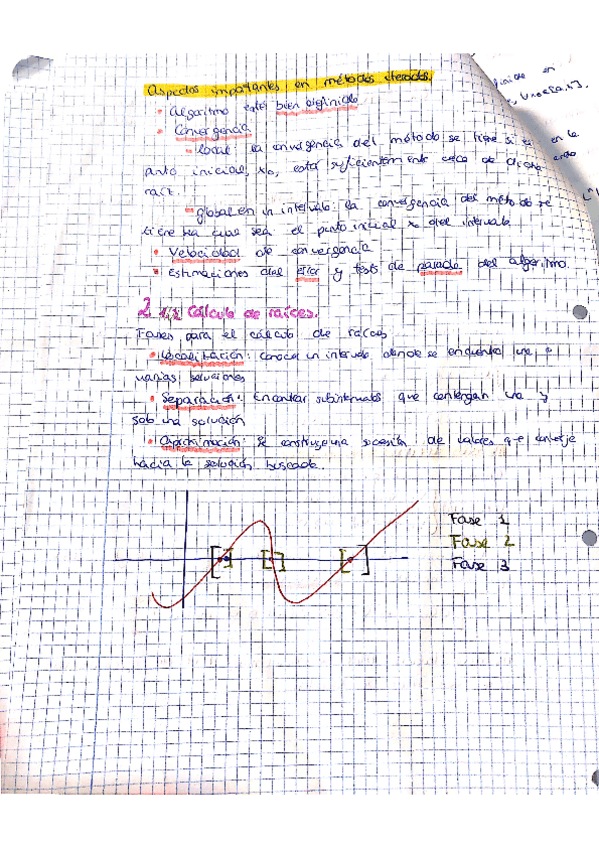 Aspectos importantes en métodos iterados.
• Algoritmo esté bien definido
• Convergencia
- local: la convergencia del método se tiene si en la
anto inicial, x0, está suficientemente cerca de dicha
raíz.
- global en un intervalo: la convergencia del método se
tiene sea cual sea el punto inicial x0 del intervalo
• Velocidad de convergencia
• Estimaciones del error y tests de parada del algoritmo.
Cálculo de raíces.
Fases para el cálculo de raíces
• Localización: conocer un intervalo donde se encuentra una o
varias soluciones
• Separación: Encontrar subintervalos que contengan una y
solo una solución
• Aproximación: Se construye una sucesión de valores que converje
hacia la solución buscada.
Fase 1
Fase 2
Fase 3